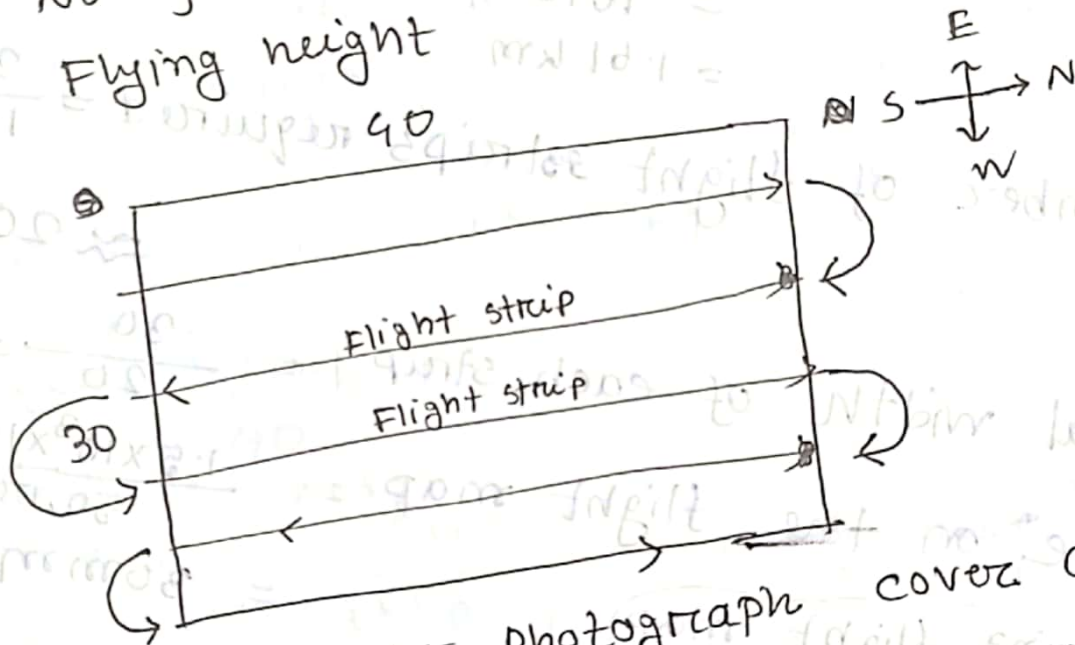 Flying height
40
E
S N
W
Flight strip
Flight strip
30
photograph cover